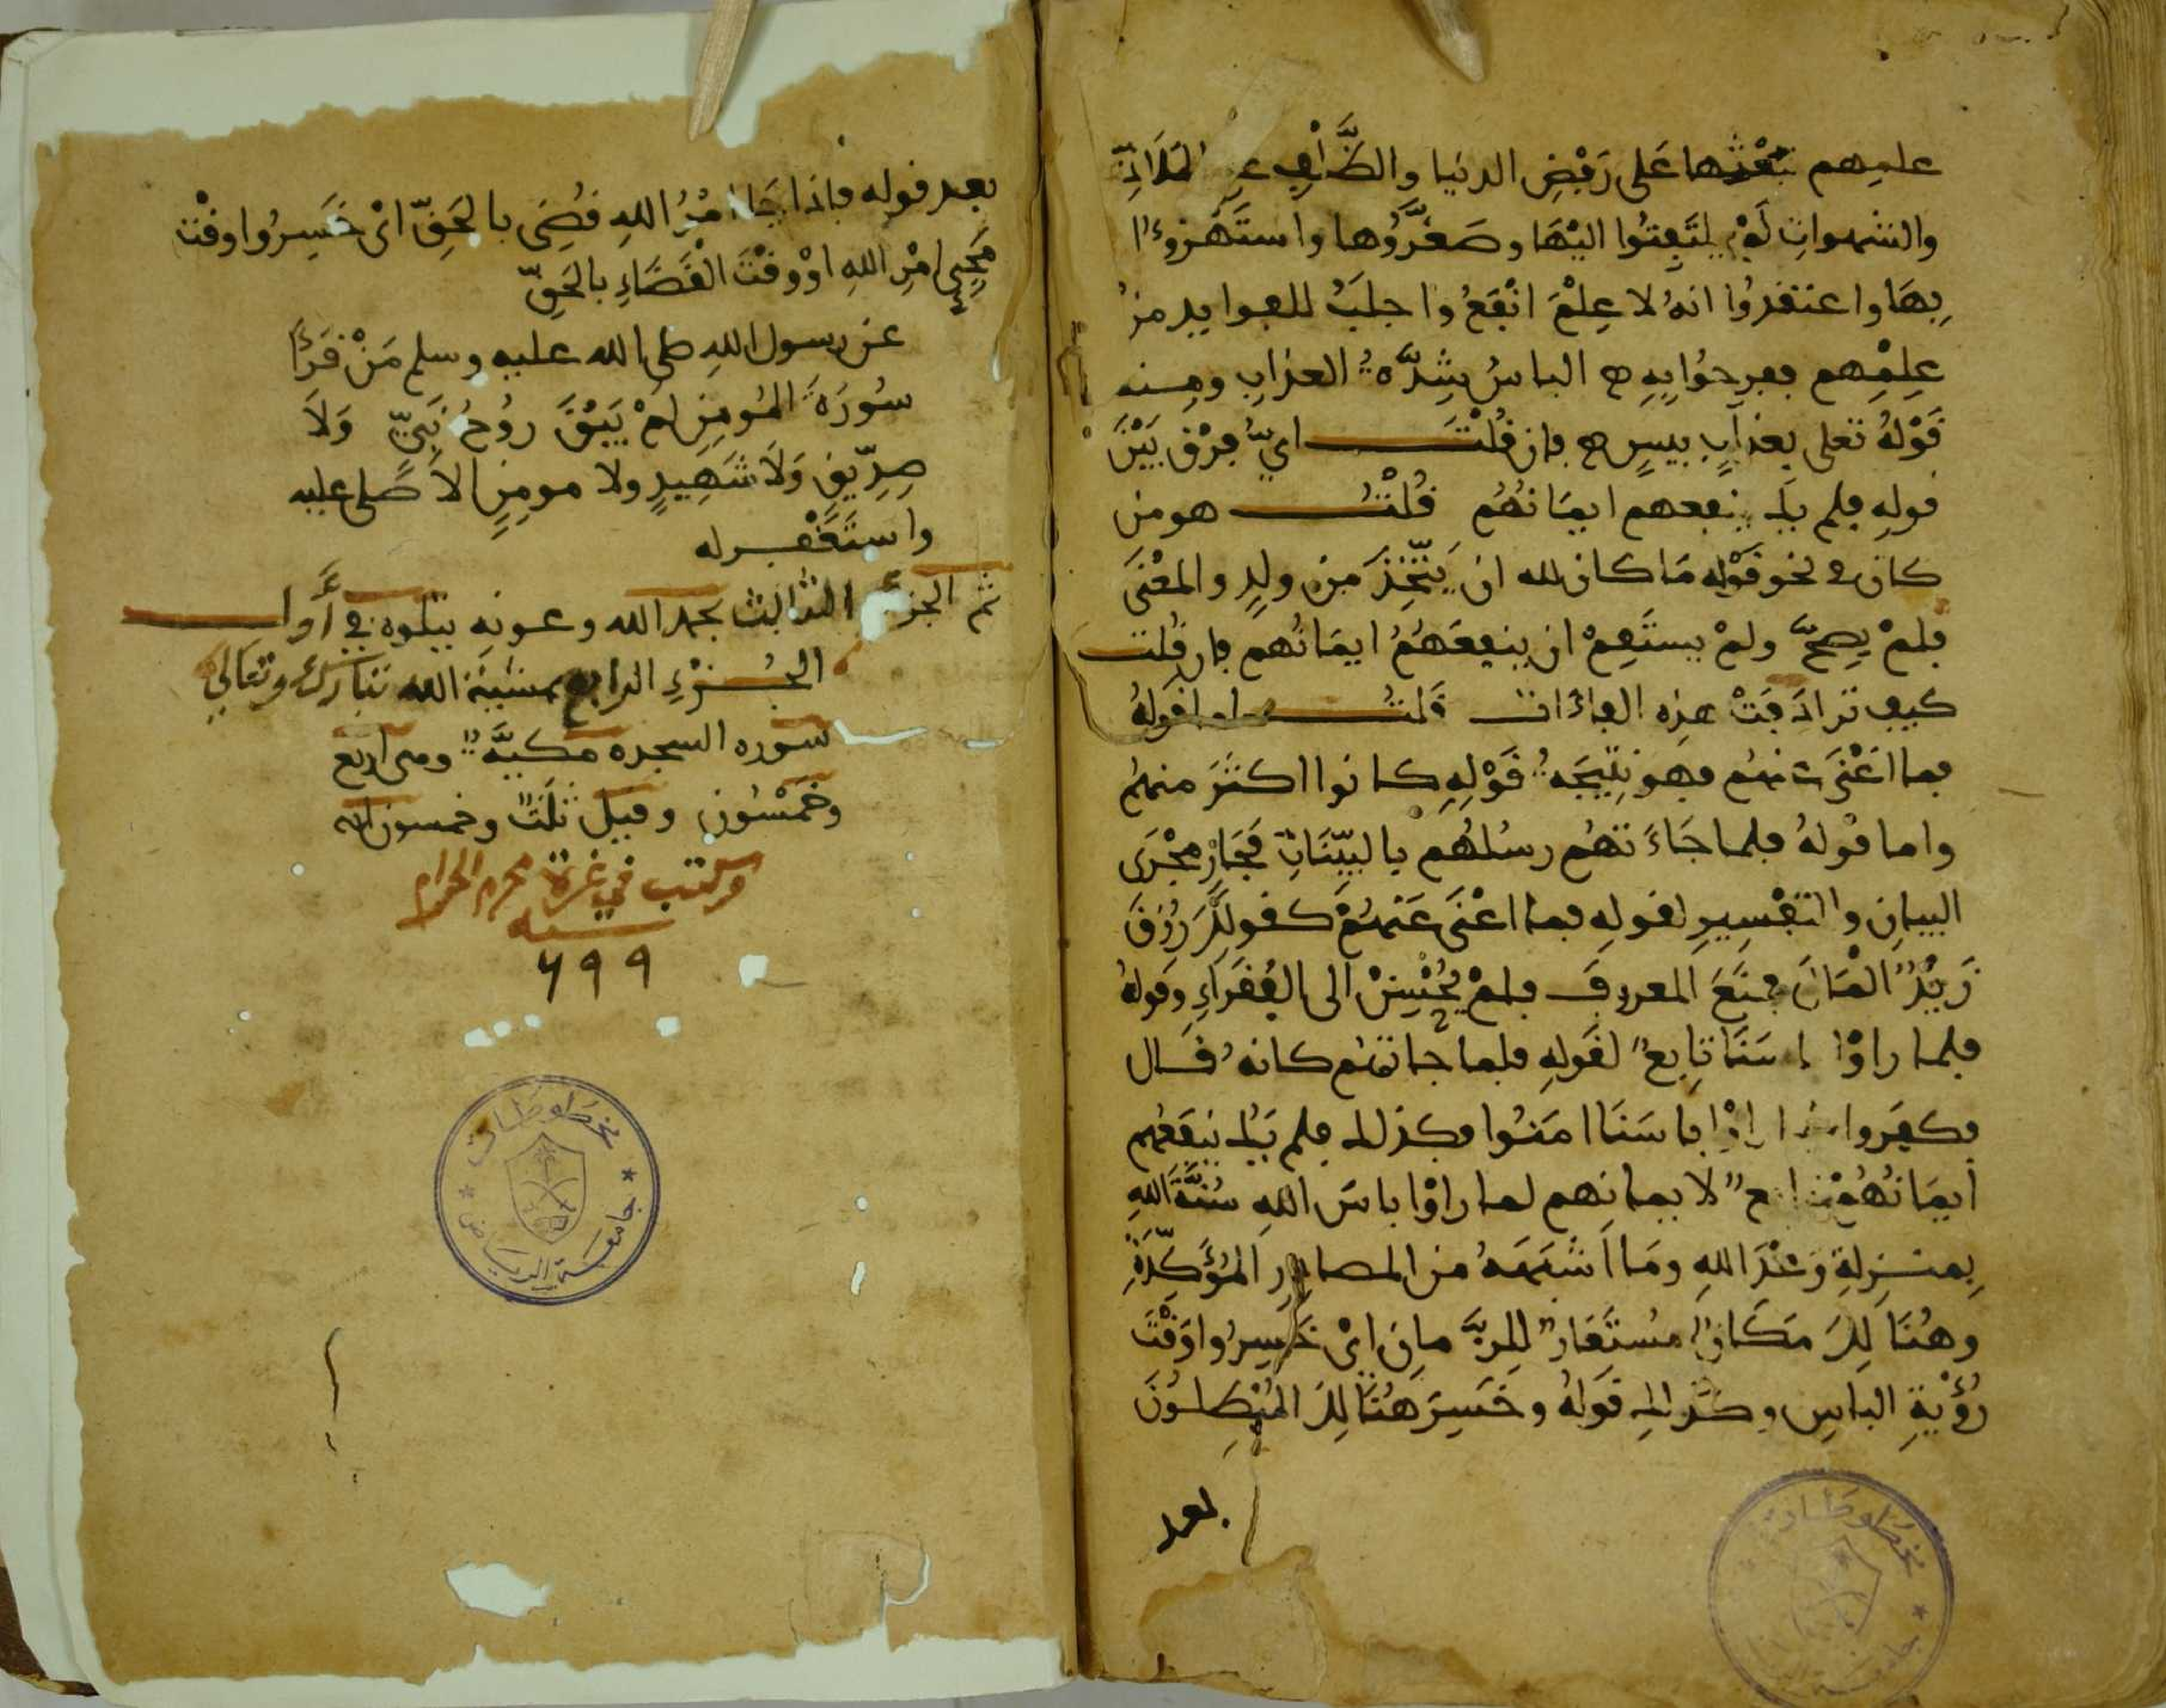 عليهم تبعثها على رفض الدنيا والظلف عن الملاذ
والشهوات لم يلتفتوا اليها وصغروها واستهزءوا
بها واعتقدوا انه لا علم انفع واجلب للفوايد من
علمهم ففرحوا به الباس شدة العذاب ومنه
قوله تعلى بعذاب بييس فان قلت اي فرق بين
قوله فلم يك ينفعهم ايمانهم قلت هو من
كان في نحو قوله ما كان لله ان يتخذ من ولد والمعنى
فلم يصح ولم يستقم ان ينفعهم ايمانهم فان قلت
كيف ترادفت هذه الفاءات قلت اما قوله
فما اغنى عنهم فهو نتيجة قوله كانوا اكثر منهم
واما قوله فلما جاءتهم رسلهم بالبينات فجار مجرى
البيان والتفسير لقوله فما اغنى عنهم كقولك رزق
زيد المال فمنع المعروف فلم يحسن الى الفقراء وقوله
فلما راوا باسنا تابع لقوله فلما جاتهم كانه قال
فكفروا فلما راوا باسنا امنوا وكذلك فلم يك ينفعهم
ايمانهم تابع لايمانهم لما راوا باس الله سنة الله
بمنزلة وعد الله وما اشبهه من المصادر المؤكدة
وهنالك مكان مستعار للزمان اي خسروا وقت
رؤية الباس وكذلك قوله وخسر هنالك المبطلون
بعد
بعد قوله فاذا جا امر الله قضي بالحق اي خسروا وقت
مجيء امر الله او وقت القضاء بالحق
عن رسول الله صلى الله عليه وسلم من قرأ
سورة المومن لم يبق روح نبي ولا
صديق ولا شهيد ولا مومن الا صلى عليه
واستغفر له
تم الجزء الثالث بحمد الله وعونه يتلوه في أول
الجزء الرابع بمشيئة الله تبارك وتعالى
سوره السجده مكية وهى اربع
وخمسون وقيل ثلث وخمسون ايه
وكتب في غرة محرم الحرام
سنه
٦٩٩
مخطوطات
جامعة الرياض
مخطوطات